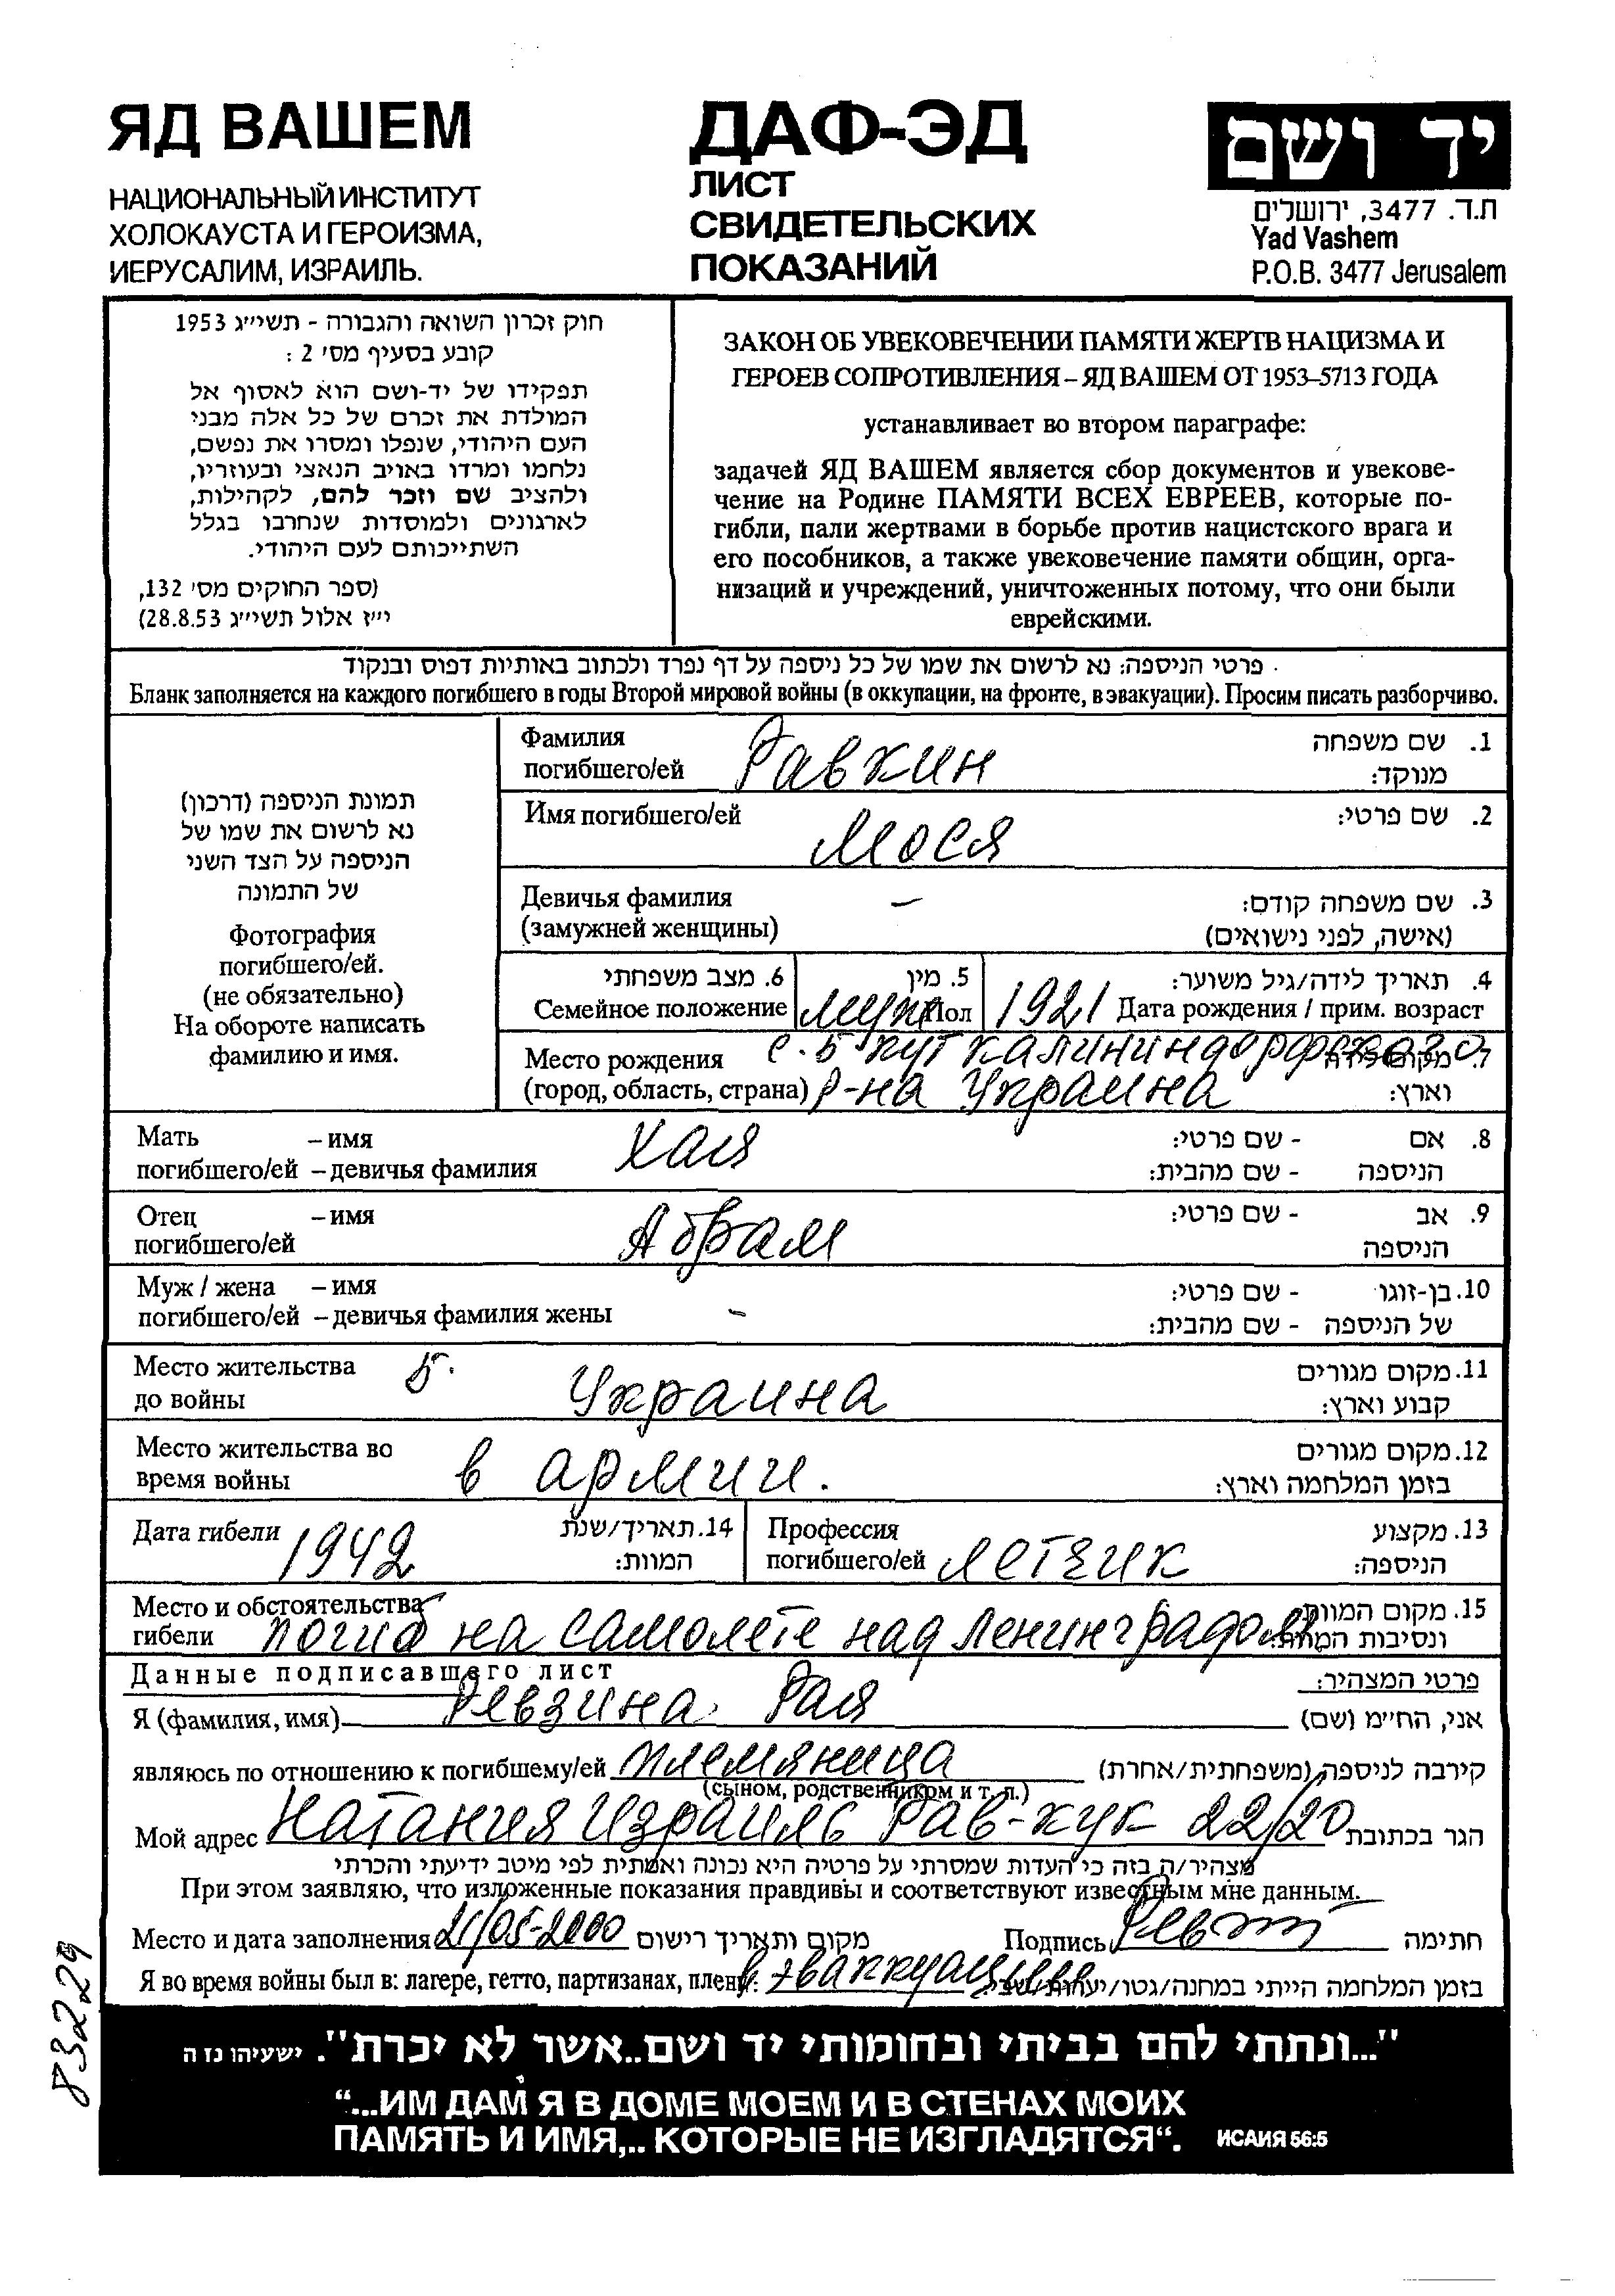 ЯД ВАШЕМ
НАЦИОНАЛЬНЫЙ ИНСТИТУТ
ХОЛОКАУСТА И ГЕРОИЗМА,
ИЕРУСАЛИМ, ИЗРАИЛЬ.
ДАФ-ЭД
ЛИСТ
СВИДЕТЕЛЬСКИХ
ПОКАЗАНИЙ
יד ושם
ת.ד. 3477, ירושלים
Yad Vashem
P.O.B. 3477 Jerusalem
חוק זכרון השואה והגבורה - תשי״ג 1953
קובע בסעיף מס׳ 2 :
תפקידו של יד-ושם הוא לאסוף אל
המולדת את זכרם של כל אלה מבני
העם היהודי, שנפלו ומסרו את נפשם,
נלחמו ומרדו באויב הנאצי ובעוזריו,
ולהציב שם וזכר להם, לקהילות,
לארגונים ולמוסדות שנחרבו בגלל
השתייכותם לעם היהודי.
(ספר החוקים מס׳ 132,
י״ז אלול תשי״ג 28.8.53)
ЗАКОН ОБ УВЕКОВЕЧЕНИИ ПАМЯТИ ЖЕРТВ НАЦИЗМА И
ГЕРОЕВ СОПРОТИВЛЕНИЯ – ЯД ВАШЕМ ОТ 1953–5713 ГОДА
устанавливает во втором параграфе:
задачей ЯД ВАШЕМ является сбор документов и увекове-
чение на Родине ПАМЯТИ ВСЕХ ЕВРЕЕВ, которые по-
гибли, пали жертвами в борьбе против нацистского врага и
его пособников, а также увековечение памяти общин, орга-
низаций и учреждений, уничтоженных потому, что они были
еврейскими.
פרטי הניספה: נא לרשום את שמו של כל ניספה על דף נפרד ולכתוב באותיות דפוס ובנקוד
Бланк заполняется на каждого погибшего в годы Второй мировой войны (в оккупации, на фронте, в эвакуации). Просим писать разборчиво.
תמונת הניספה (דרכון)
נא לרשום את שמו של
הניספה על הצד השני
של התמונה
Фотография
погибшего/ей.
(не обязательно)
На обороте написать
фамилию и имя.
Фамилия Равкин 1. שם משפחה
погибшего/ей מנוקד:
Имя погибшего/ей Мося 2. שם פרטי:
Девичья фамилия – 3. שם משפחה קודם:
(замужней женщины) (אישה, לפני נישואים)
6. מצב משפחתי 5. מין 4. תאריך לידה/גיל משוער:
Семейное положение муж Пол 1921 Дата рождения / прим. возраст
Место рождения с. Б Кут Калининдорфского 7.
(город, область, страна) р-на Украина וארץ:
Мать – имя Хая 8. אם - שם פרטי:
погибшего/ей – девичья фамилия הניספה - שם מהבית:
Отец – имя Абрам 9. אב - שם פרטי:
погибшего/ей הניספה
Муж / жена – имя 10. בן-זוגו - שם פרטי:
погибшего/ей – девичья фамилия жены – של הניספה - שם מהבית:
Место жительства Б. 11. מקום מגורים
до войны Украина קבוע וארץ:
Место жительства во 12. מקום מגורים
время войны в армии. בזמן המלחמה וארץ:
Дата гибели 1942 14. תאריך/שנת המוות:
Профессия 13. מקצוע
погибшего/ей летчик הניספה:
Место и обстоятельства 15. מקום המוות
гибели погиб на самолете над Ленинградом ונסיבות המוות:
Данные подписавшего лист פרטי המצהיר:
Я (фамилия, имя) Ревзина Рая אני, הח״מ (שם)
являюсь по отношению к погибшему/ей племяница קירבה לניספה (משפחתית/אחרת)
(сыном, родственником и т. п.)
Мой адрес Натания Израиль Рав-Кук 22/20 הגר בכתובת
מצהיר/ה בזה כי העדות שמסרתי על פרטיה היא נכונה ואמתית לפי מיטב ידיעתי והכרתי
При этом заявляю, что изложенные показания правдивы и соответствуют известным мне данным.
Место и дата заполнения 21/05-2000 מקום ותאריך רישום Подпись חתימה
Я во время войны был в: лагере, гетто, партизанах, плену: в эваккуации בזמן המלחמה הייתי במחנה/גטו/יערות/שבי:
83229
"...ונתתי להם בביתי ובחומותי יד ושם..אשר לא יכרת". ישעיהו נז ה
“...ИМ ДАМ Я В ДОМЕ МОЕМ И В СТЕНАХ МОИХ
ПАМЯТЬ И ИМЯ,.. КОТОРЫЕ НЕ ИЗГЛАДЯТСЯ“. ИСАИЯ 56:5